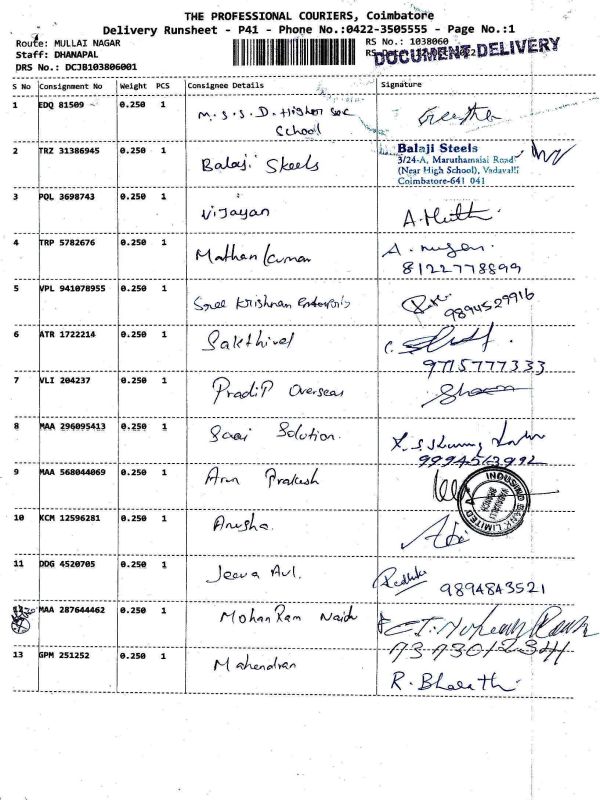 THE PROFESSIONAL COURIERS, Coimbatore
Delivery Runsheet - P41 - Phone No.:0422-3505555 - Page No.:1
Route: MULLAI NAGAR RS No.: 1038060
Staff: DHANAPAL RS Date:
DOCUMENT DELIVERY
DRS No.: DCJB103806001
S No Consignment No Weight PCS Consignee Details Signature
1 EDQ 81509 0.250 1 M.S.S.D. Higher Sec
School
2 TRZ 31386945 0.250 1 Balaji Steels Balaji Steels
3/24-A, Maruthamalai Road
(Near High School), Vadavalli
Coimbatore-641 041
3 POL 3698743 0.250 1 Vijayan A.Muth
4 TRP 5782676 0.250 1 Mathan Kumar A.
8122778899
5 VPL 941078955 0.250 1 Sree Krishnan Enterprises
9894529916
6 ATR 1722214 0.250 1 Sakthivel
9715777333
7 VLI 204237 0.250 1 Pradip Overseas
8 MAA 296095413 0.250 1 Saai Solution.
9 MAA 568044069 0.250 1 Arun Prakash
INDUSIND BANK LIMITED
VADAVALLI BRANCH
10 KCM 12596281 0.250 1 Anusha.
11 DDG 4520705 0.250 1 Jeeva Avl.
9894843521
12 MAA 287644462 0.250 1 Mohan Ram Naidu
13 GPM 251252 0.250 1 Mahendran
R. Bharathi